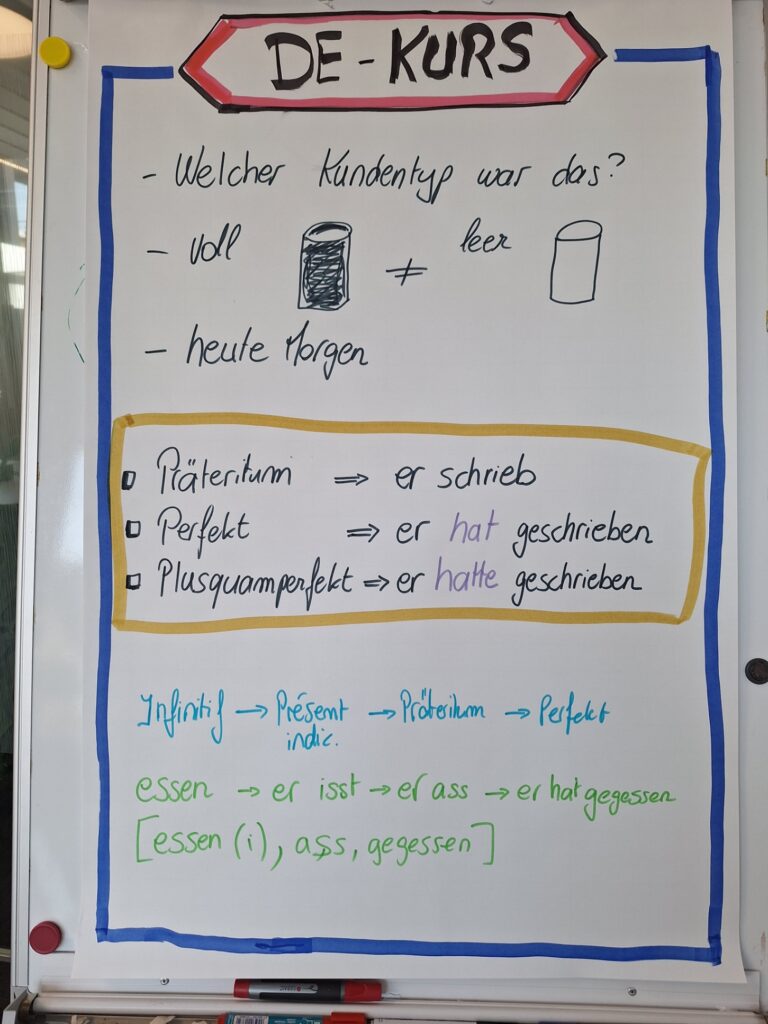 DE - KURS
- Welcher Kundentyp war das?
- voll ≠ leer
- heute Morgen
Präteritum ⇒ er schrieb
Perfekt ⇒ er hat geschrieben
Plusquamperfekt ⇒ er hatte geschrieben
Infinitif → Présent → Präteritum → Perfekt
indic.
essen → er isst → er ass → er hat gegessen
[essen (i), ass, gegessen]